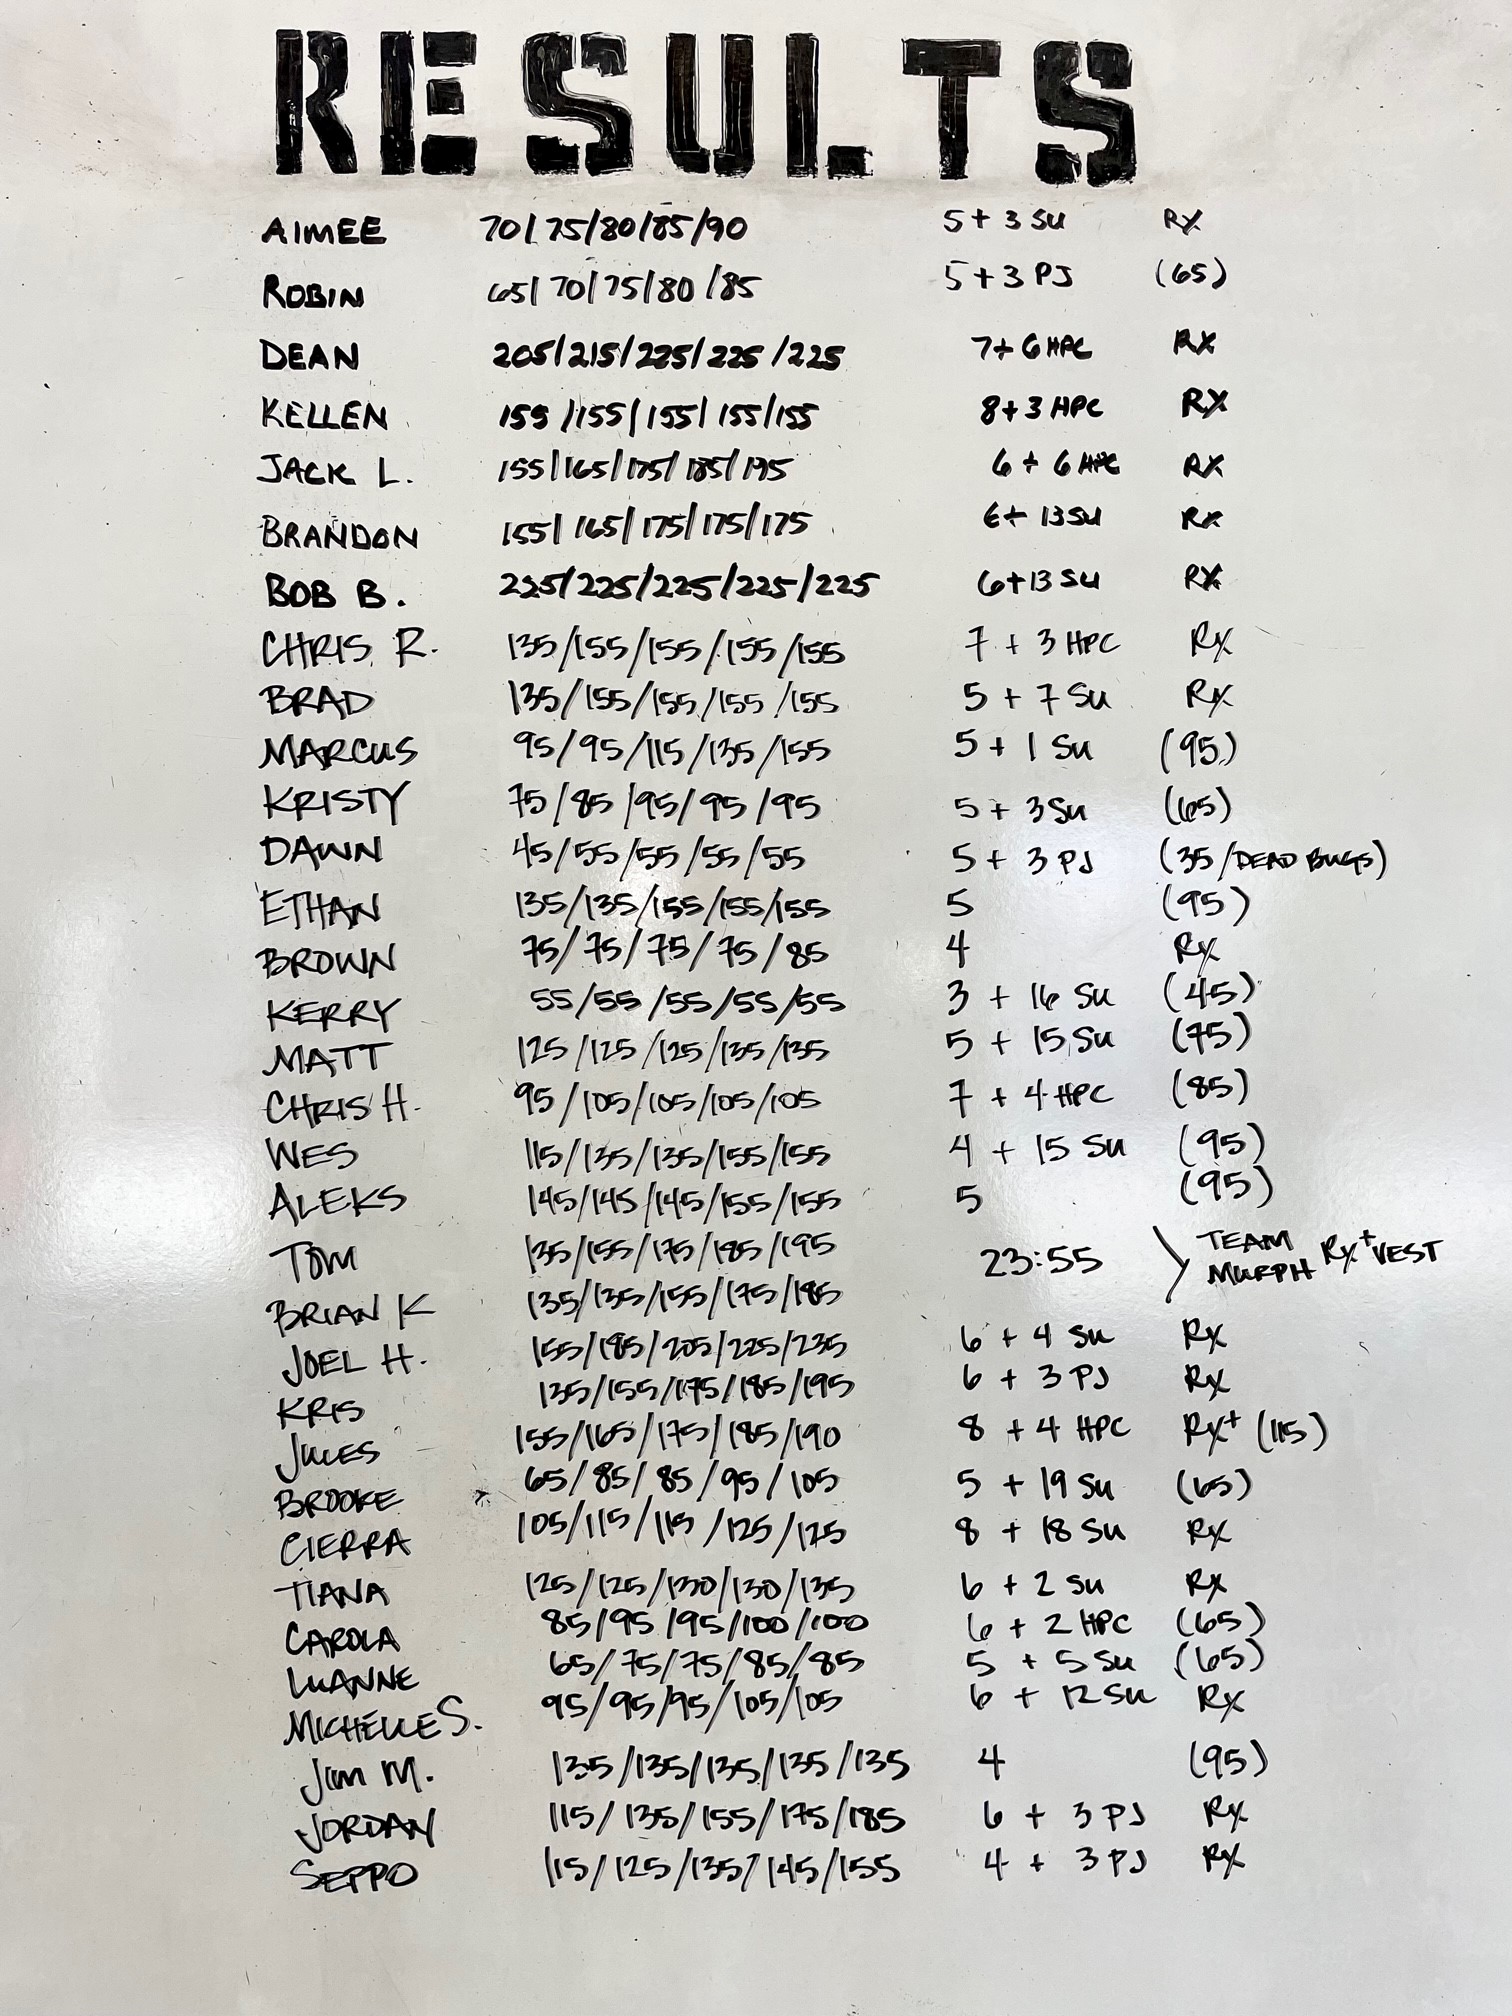 RESULTS
AIMEE 70/75/80/85/90 5 + 3 SU RX
ROBIN 65/70/75/80/85 5 + 3 PJ (65)
DEAN 205/215/225/225/225 7 + 6 HPC RX
KELLEN 155/155/155/155/155 8 + 3 HPC RX
JACK L. 155/165/175/185/195 6 + 6 HPC RX
BRANDON 155/165/175/175/175 6 + 13 SU RX
BOB B. 225/225/225/225/225 6 + 13 SU RX
CHRIS R. 135/155/155/155/155 7 + 3 HPC Rx
BRAD 135/155/155/155/155 5 + 7 SU Rx
MARCUS 95/95/115/135/155 5 + 1 SU (95)
KRISTY 75/85/95/95/95 5 + 3 SU (65)
DAWN 45/55/55/55/55 5 + 3 PJ (35/DEAD BUGS)
ETHAN 135/135/155/155/155 5 (95)
BROWN 75/75/75/75/85 4 Rx
KERRY 55/55/55/55/55 3 + 16 SU (45)
MATT 125/125/125/135/135 5 + 15 SU (75)
CHRIS H. 95/105/105/105/105 7 + 4 HPC (85)
WES 115/135/135/155/155 4 + 15 SU (95)
ALEKS 145/145/145/155/155 5 (95)
TOM 135/155/175/185/195 23:55 TEAM MURPH Rx+ VEST
BRIAN K 135/135/155/175/185
JOEL H. 155/185/205/225/235 6 + 4 SU Rx
KRIS 135/155/175/185/195 6 + 3 PJ Rx
JULES 155/165/175/185/190 8 + 4 HPC Rx+ (115)
BROOKE 65/85/85/95/105 5 + 19 SU (65)
CIERRA 105/115/115/125/125 8 + 18 SU Rx
TIANA 125/125/130/130/135 6 + 2 SU Rx
CAROLA 85/95/95/100/100 6 + 2 HPC (65)
LUANNE 65/75/75/85/85 5 + 5 SU (65)
MICHELLE S. 95/95/95/105/105 6 + 12 SU Rx
JIM M. 135/135/135/135/135 4 (95)
JORDAN 115/135/155/175/185 6 + 3 PJ Rx
SEPPO 115/125/135/145/155 4 + 3 PJ Rx